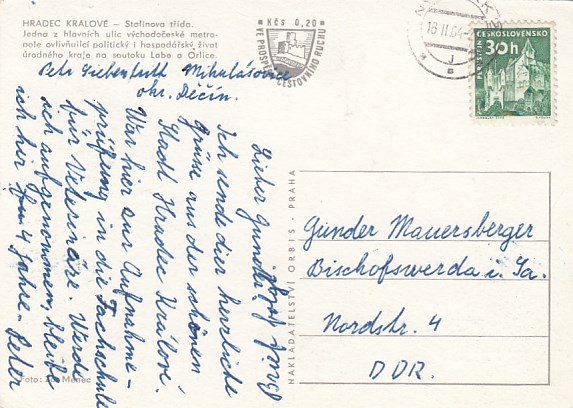 HRADEC KRÁLOVÉ – Stalinova třída.
Jedna z hlavních ulic východočeské metro-
pole ovlivňující politický i hospodářský život
úrodného kraje na soutoku Labe a Orlice.
Petr Siebenfritt Mikulášovice
okr. Děčín.
Kčs 0,20
VE PROSPĚCH CESTOVNÍHO RUCHU
18.II.64
ČESKOSLOVENSKO
30h
PLAVEČ
Lieber Gunder
Ich sende dir herrliche
Grüsse aus der schönen
Stadt Hradec Králové.
War hier zur Aufnahme-
prüfung in die Fachschule
für Veterinäre. Werde
ich aufgenommen, bleibe
ich hier 4 Jahre – Peter
NAKLADATELSTVÍ ORBIS · PRAHA
Günder Mauersberger
Bischofswerda i. Sa.
Nordstr. 4
DDR.
Foto: Menec